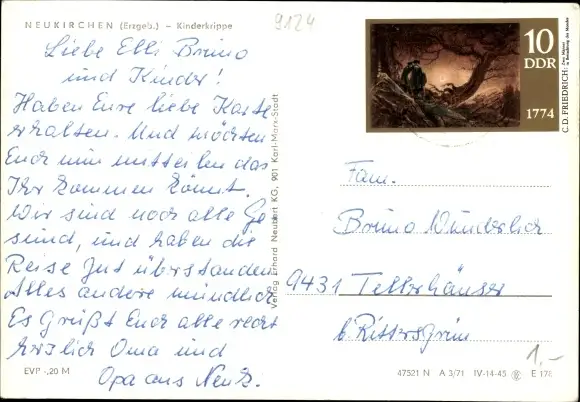 NEUKIRCHEN (Erzgeb.) – Kinderkrippe
9124
Liebe Elli Bruno
und Kinder!
Haben Eure liebe Karte
erhalten. Und möchten
Euch nun mitteilen das
Ihr kommen könnt.
Wir sind noch alle Ge
sund, und haben die
Reise gut überstanden
Alles andere mündlich
Es Grüßt Euch alle recht
herzlich Oma und
Opa aus Neuk.
EVP -,20 M
Verlag Erhard Neubert KG, 901 Karl-Marx-Stadt
10
DDR
1774
C.D. FRIEDRICH:
Zwei Männer
in Betrachtung des Mondes
Fam.
Bruno Wunderlich
9431 Tellerhäuser
b. Rittersgrün
1,-
47521 N A 3/71 IV-14-45 E 174